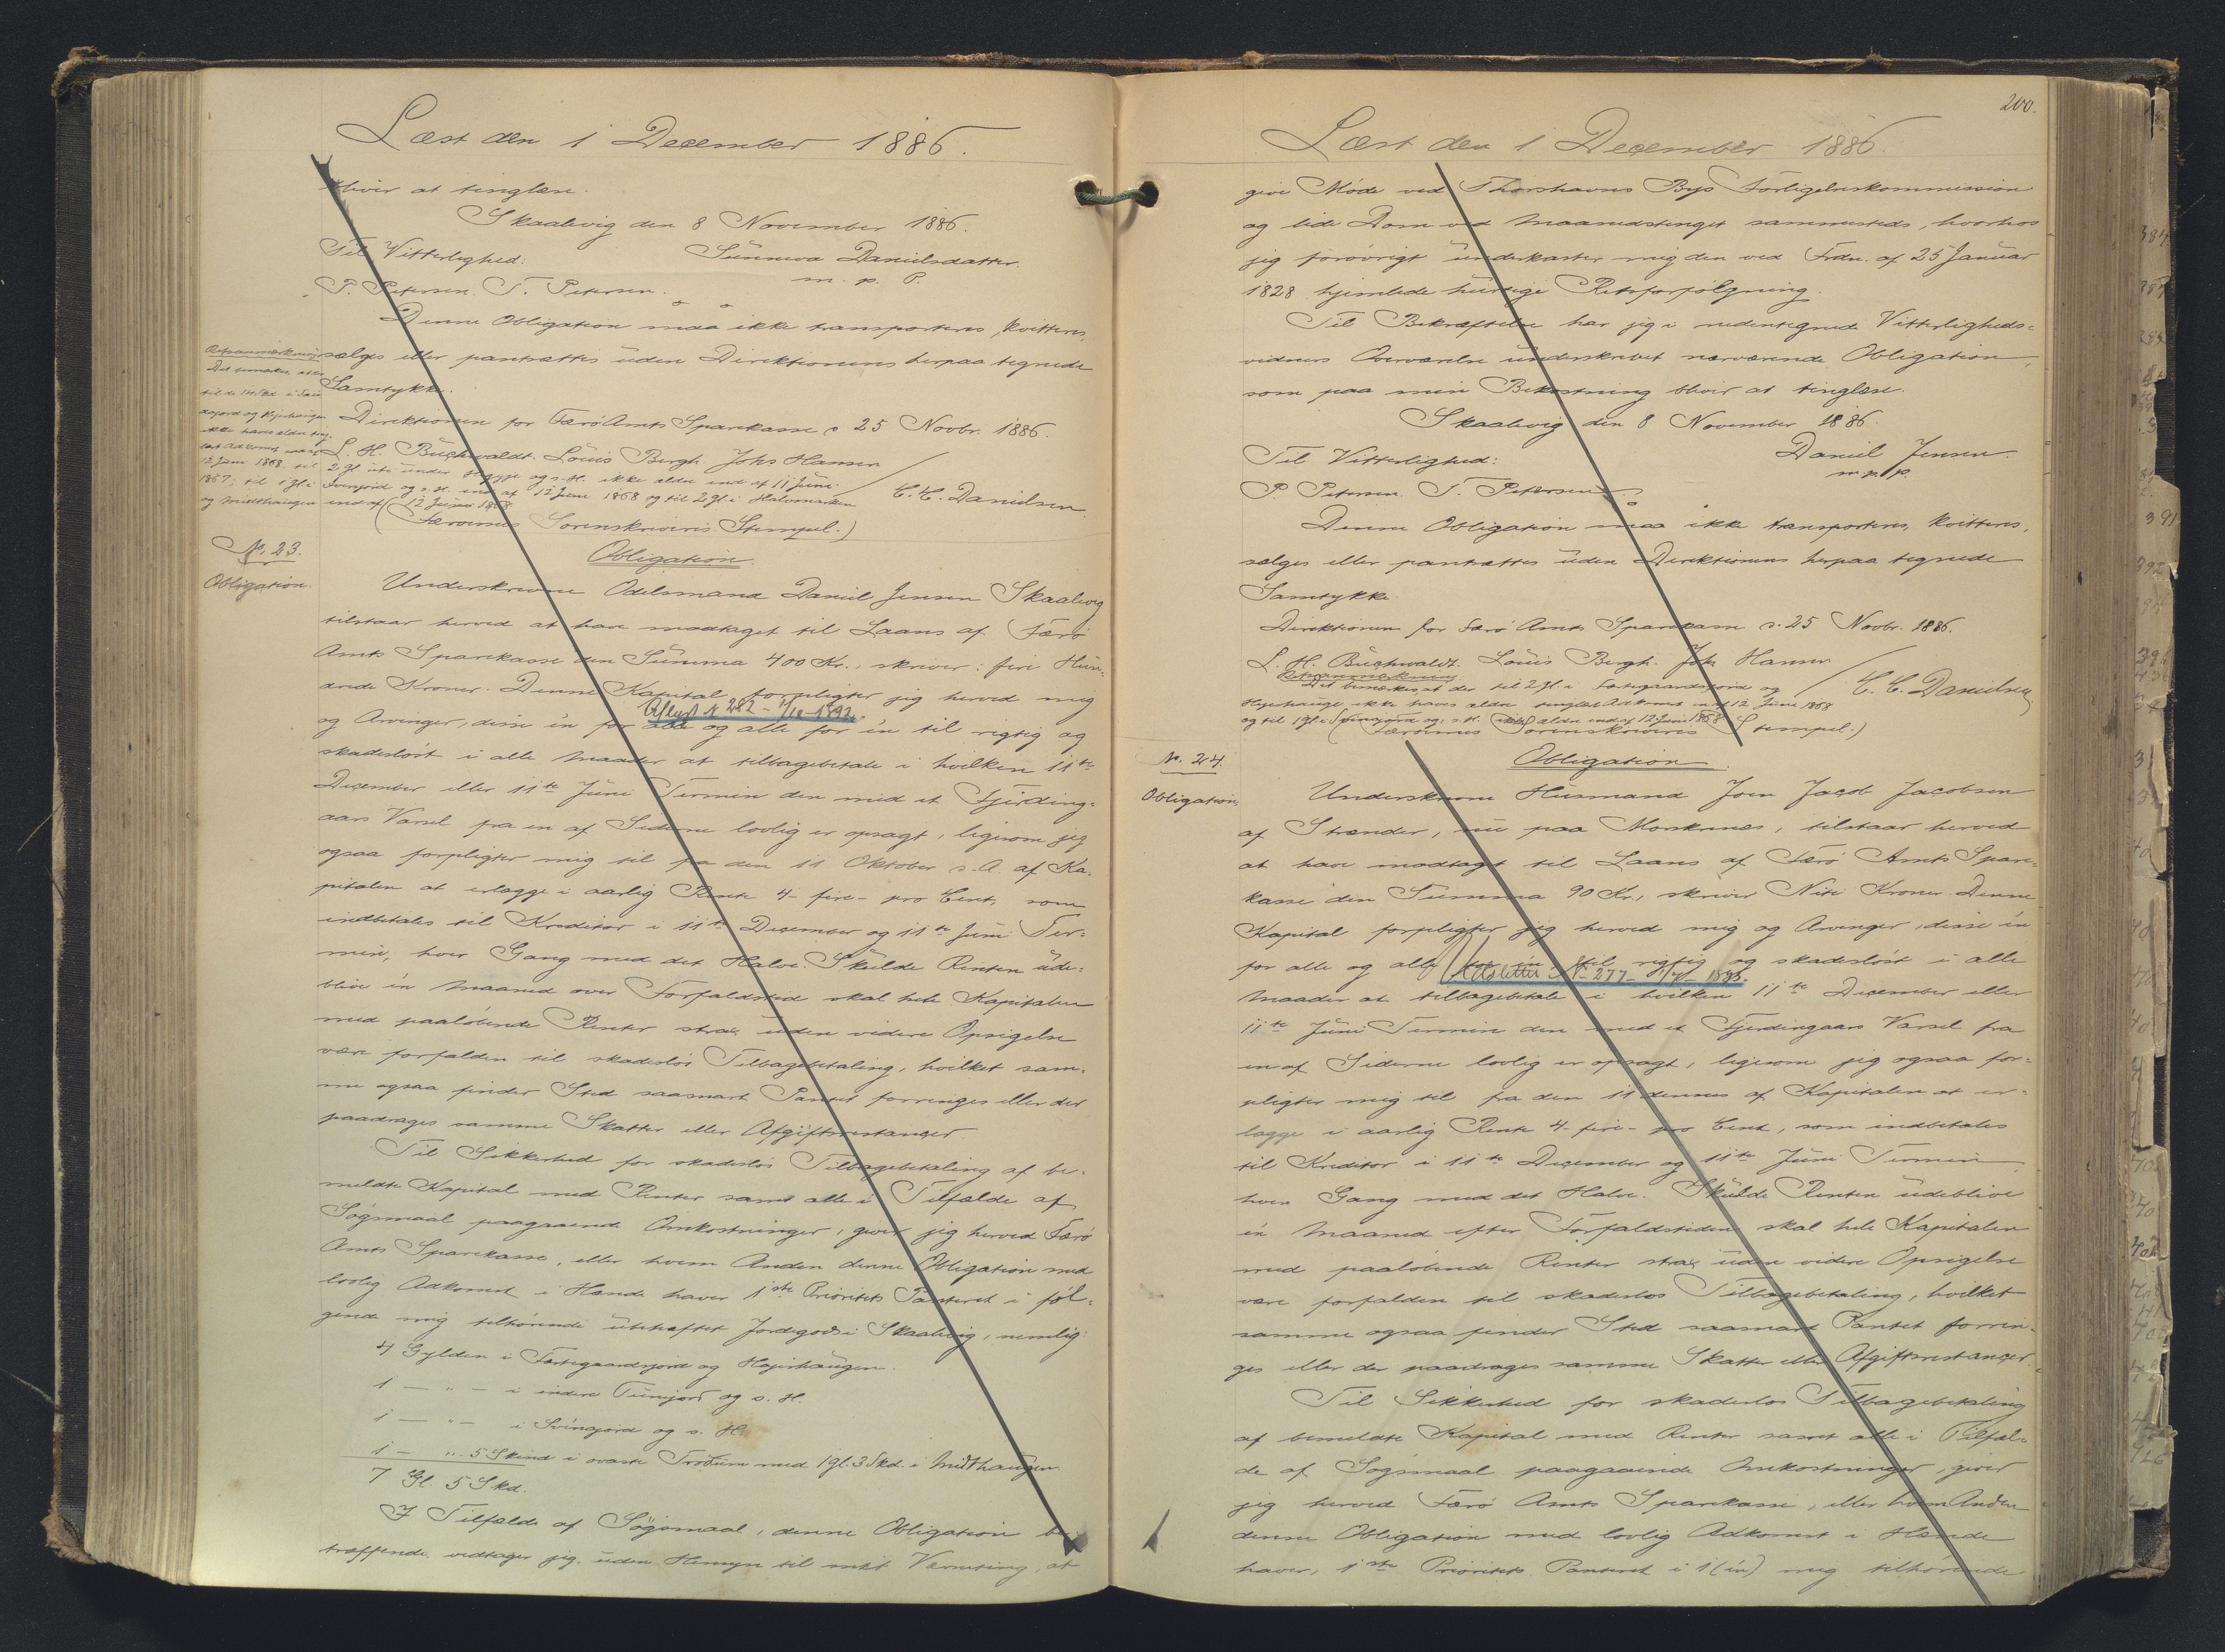 Læst den 1 December 1886.
bliver at tinglæse.
Skaalevig den 8 November 1886.
Til Vitterlighed: Sunneva Danielsdatter.
P. Petersen. T. Petersen. m. p. P.
Denne Obligation maa ikke transporteres, kvitteres,
sælges eller pantsættes uden Direktionens herpaa tegnede
Samtykke.
Direktionen for Færø Amts Sparekasse d 25 Novbr. 1886.
L. H. Buchwaldt. Louis Bergh. Johs Hansen
C. C. Danielsen.
Retsanmærkning
Det bemærkes at der
til de 14 Skd i
og Hejehaugen
ikke haves ældre ting-
læst Adkomst end af
12 Juni 1868, til 2 gl ute under og s. H. ikke ældre end af 11 Juni
1867; til 1 gl. i Svinajord og s. H. end af 12 Juni 1868 og til 2 gl. i Halvmarken
og Midthaugen end af 12 Juni 1868
(Færøernes Sorenskriveris Stempel.)
No. 23.
Obligation.
Obligation.
Underskrevne Odelsmand Daniel Jensen Skaalevig
tilstaar herved at have modtaget til Laans af Færø
Amts Sparekasse den Summa 400 Kr., skriver: fire Hun-
drede Kroner. Denne Kapital forpligter jeg herved mig
Aflyst N 282 - 1892.
og Arvinger, disse én for alle og alle for én til rigtig og
skadesløst i alle Maader at tilbagebetale i hvilken 11te
December eller 11te Juni Termin den med et Fjerding-
aars Varsel fra en af Siderne lovlig er opsagt, ligesom jeg
ogsaa forpligter mig til fra den 11 Oktober d. A. af Ka-
pitalen at erlægge i aarlig Rente 4 - fire - pro Cent, som
indbetales til Kreditor i 11te December og 11te Juni Ter-
min, hver Gang med det Halve. Skulde Renten ude-
blive én Maaned over Forfaldstid skal hele Kapitalen
med paaløbende Renter strax uden videre Opsigelse
være forfalden til skadesløs Tilbagebetaling, hvilket sam-
me ogsaa finder Sted saasnart Pantet forringes eller der
paadrages samme Skatter eller Afgiftsrestancer.
Til Sikkerhed for skadesløs Tilbagebetaling af be-
meldte Kapital med Renter samt alle i Tilfælde af
Søgsmaal paagaaende Omkostninger, giver jeg herved Færø
Amts Sparekasse, eller hvem Anden denne Obligation med
lovlig Adkomst i Hænde haver 1ste Prioritets Panteret i føl-
gende mig tilhørende ubehæftet Jordegods i Skaalevig, nemlig:
4 Gylden i Færtegaardsjord og Hejishaugen.
1 — " — i indere Tunsjord og s. H.
1 — " — i Svinajord og s. H.
1 — " 5 Skind i ovaste Trødum med 1 gl. 3 Skd. i Midthaugen.
7 Gl. 5 Skd.
I Tilfælde af Søgsmaal, denne Obligation be-
træffende, vedtager jeg uden Hensyn til mit Værneting, at
200.
Læst den 1 December 1886.
give Møde ved Thorshavns Bys Forligelseskommission
og lide Dom ved Maanedstinget sammesteds, hvorhos
jeg forøvrigt underkaster mig den ved Frdn. af 25 Januar
1828 hjemlede hurtige Retsforfølgning.
Til Bekræftelse har jeg i nedentegnede Vitterligheds-
vidners Overværelse underskrevet nærværende Obligation,
som paa min Bekostning bliver at tinglæse.
Skaalevig den 8 November 1886.
Til Vitterlighed: Daniel Jensen.
P. Petersen. T. Petersen. m. p. P.
Denne Obligation maa ikke transporteres, kvitteres,
sælges eller pantsættes uden Direktionens herpaa tegnede
Samtykke.
Direktionen for Færø Amts Sparekasse d. 25 Novbr. 1886.
L. H. Buchwaldt. Louis Bergh. Johs Hansen
C. C. Danielsen
Retsanmærkning
Det bemærkes at der til 2 gl. i Færtegaardsjord og
Hejehauge ikke haves ældre tinglæst Adkomst end af 12 Juni 1868
og til 1 gl. i Svinajord og s. H. ikke ældre end af 12 Juni 1868
(Færøernes Sorenskriveris Stempel.)
No. 24.
Obligation.
Obligation.
Underskrevne Husmand Joen Jacob Jacobsen
af Strænder, nu paa Morskranes, tilstaar herved
at have modtaget til Laans af Færø Amts Spare-
kasse den Summa 90 Kr., skriver Niti Kroner. Denne
Kapital forpligter jeg herved mig og Arvinger, disse én
for alle og alle for én til rigtig og skadesløst i alle
Udslettet N 277 - 1895.
Maader at tilbagebetale i hvilken 11te December eller
11te Juni Termin den med et Fjerdingaars Varsel fra
en af Siderne lovlig er opsagt, ligesom jeg ogsaa for-
pligter mig til fra den 11 dennes af Kapitalen at er-
lægge i aarlig Rente 4 - fire - pro Cent, som indbetales
til Kreditor i 11te December og 11te Juni Termin
hver Gang med det Halve. Skulde Renten udeblive
én Maaned efter Forfaldstiden skal hele Kapitalen
med paaløbende Renter strax uden videre Opsigelse
være forfalden til skadesløs Tilbagebetaling, hvilket
samme ogsaa finder Sted saasnart Pantet forrin-
ges eller der paadrages samme Skatter eller Afgiftsrestancer.
Til Sikkerhed for skadesløs Tilbagebetaling
af bemeldte Kapital med Renter samt alle i Tilfæl-
de af Søgsmaal paagaaende Omkostninger, giver
jeg herved Færø Amts Sparekasse, eller hvem Anden
denne Obligation med lovlig Adkomst i Hænde
haver, 1ste Prioritets Panteret i 1 (én) mig tilhørende